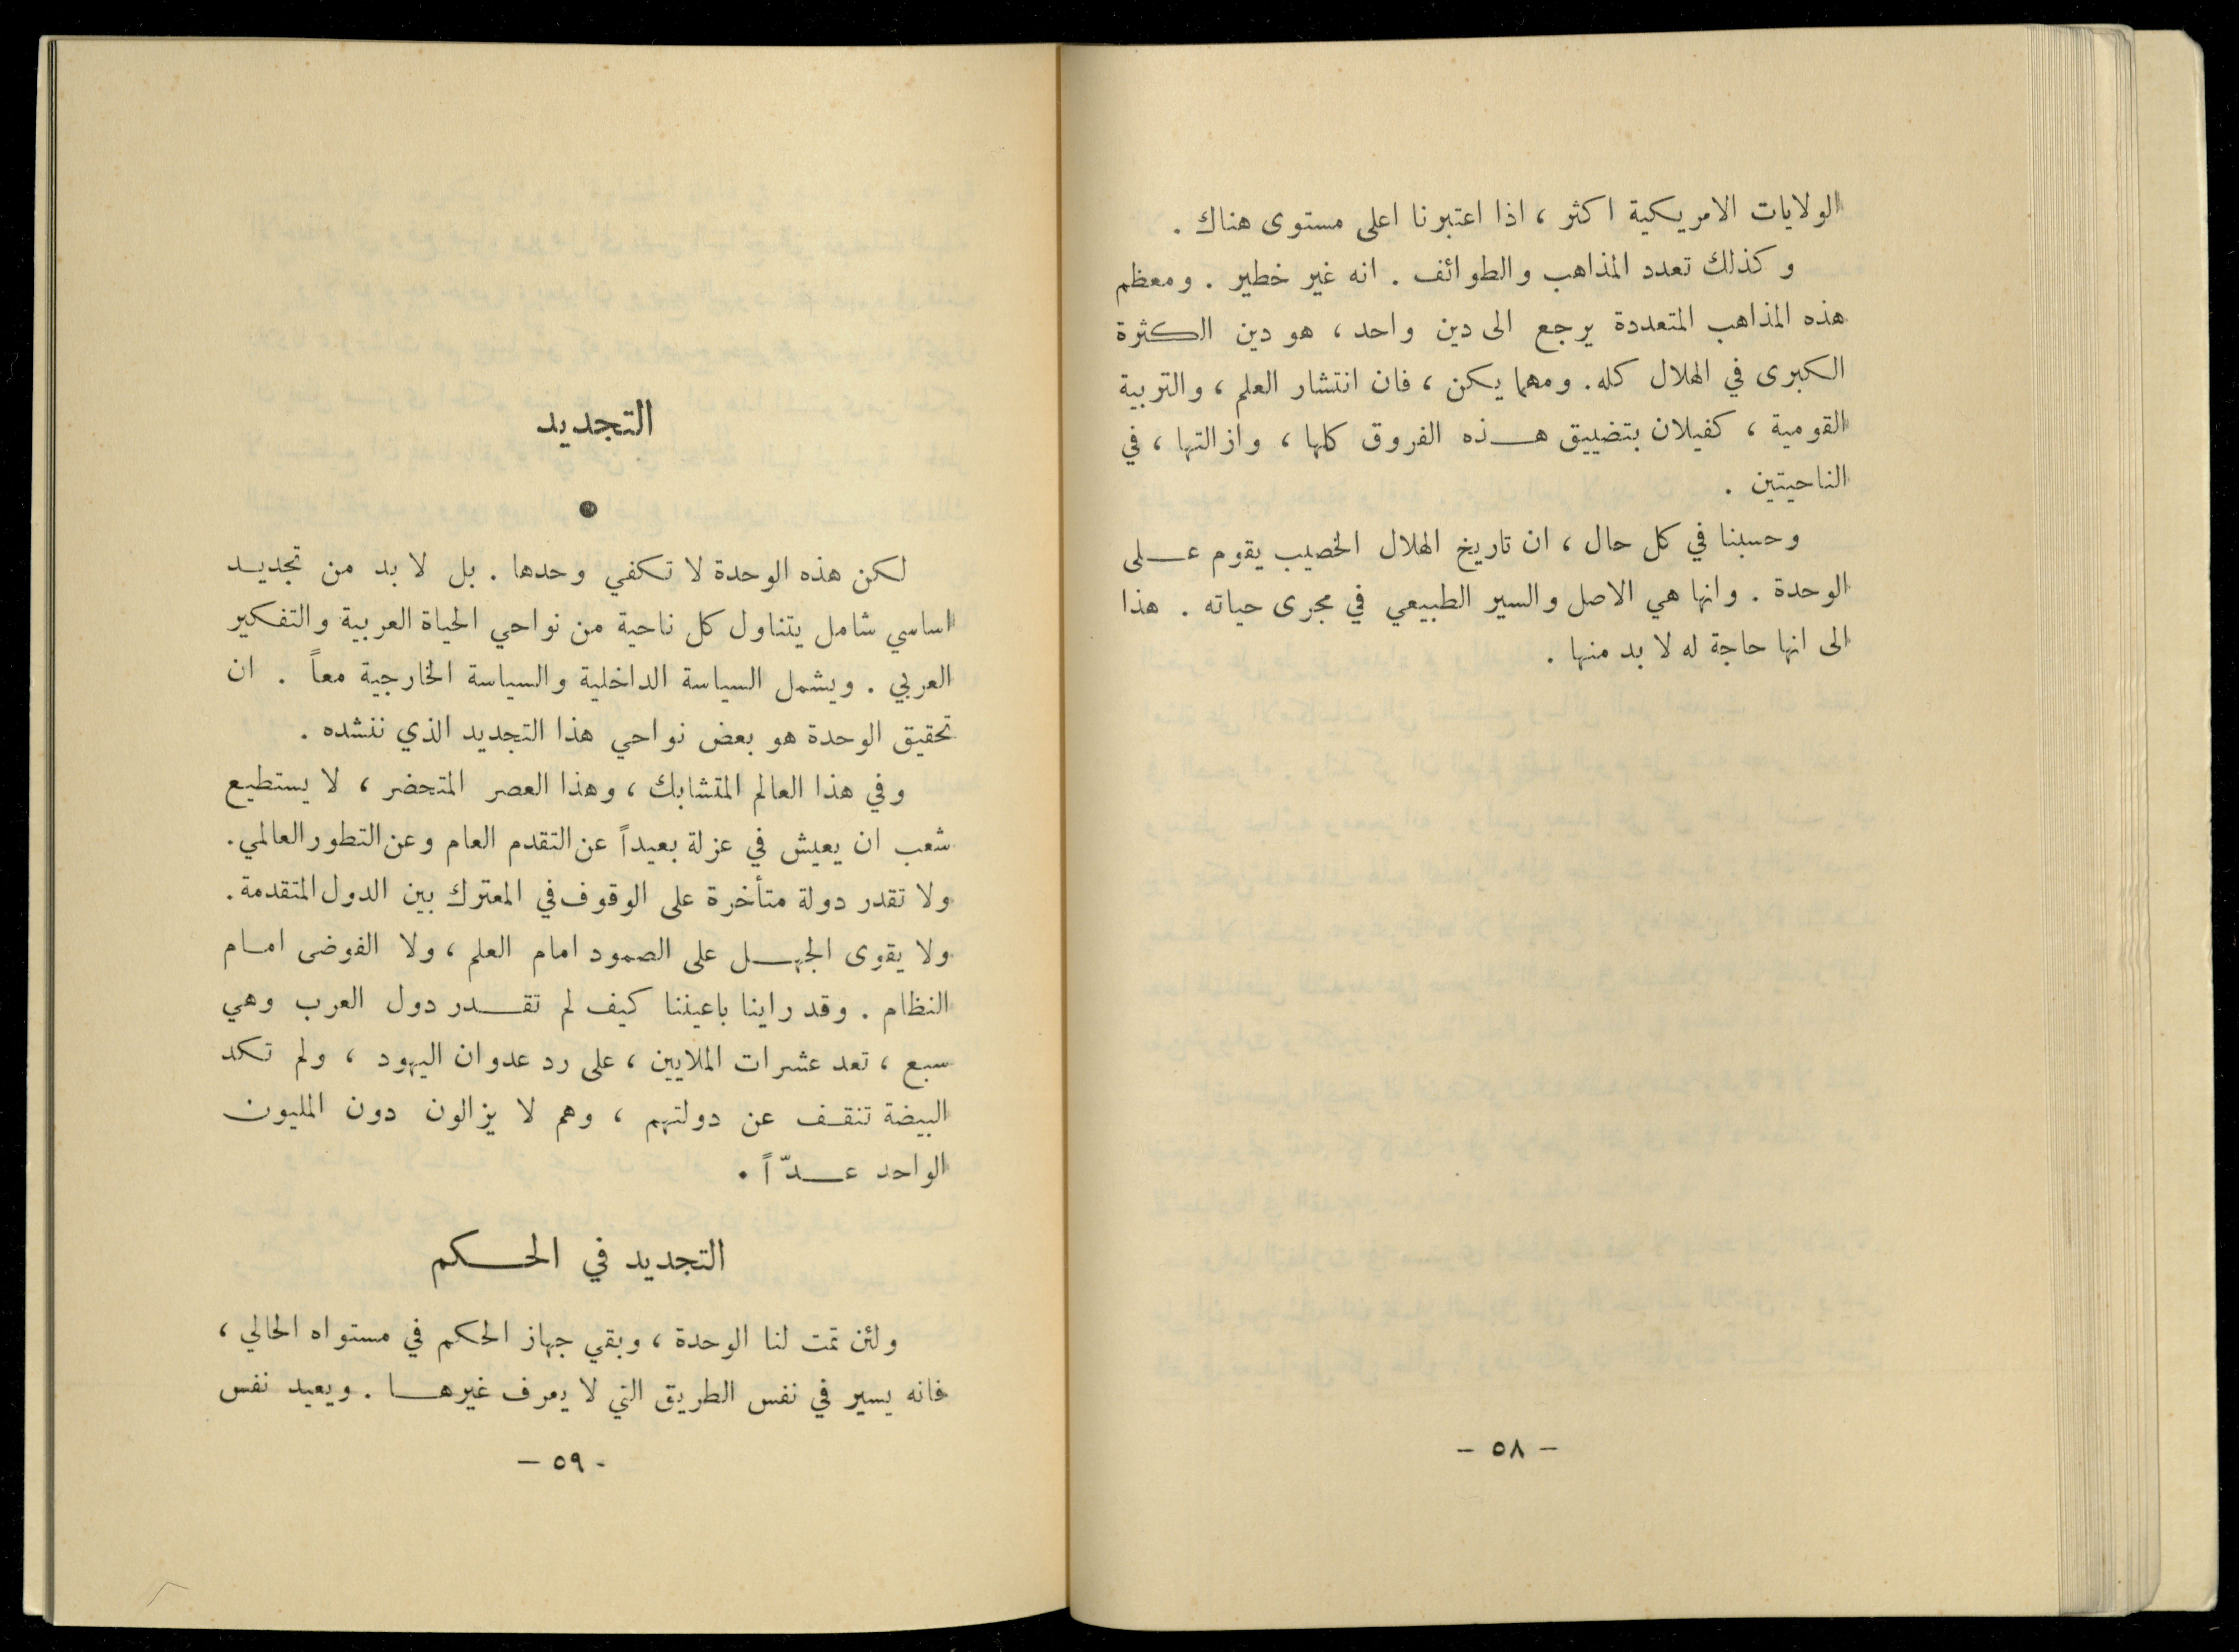 الولايات الامريكية اكثر ، اذا اعتبرنا اعلى مستوى هناك .
وكذلك تعدد المذاهب والطوائف . انه غير خطير . ومعظم
هذه المذاهب المتعددة يرجع الى دين واحد ، هو دين الكثرة
الكبرى في الهلال كله. ومهما يكن ، فان انتشار العلم ، والتربية
القومية ، كفيلان بتضييق هـذه الفروق كلها ، وازالتها ، في
الناحيتين .
وحسبنا في كل حال ، ان تاريخ الهلال الخصيب يقوم عـلى
الوحدة . وانها هي الاصل والسير الطبيعي في مجرى حياته . هذا
الى انها حاجة له لا بد منها .
– ٥٨ –
التجديد
●
لكن هذه الوحدة لا تكفي وحدها . بل لا بد من تجديـد
اساسي شامل يتناول كل ناحية من نواحي الحياة العربية والتفكير
العربي . ويشمل السياسة الداخلية والسياسة الخارجية معاً . ان
تحقيق الوحدة هو بعض نواحي هذا التجديد الذي ننشده .
وفي هذا العالم المتشابك ، وهذا العصر المتحضر ، لا يستطيع
شعب ان يعيش في عزلة بعيداً عن التقدم العام وعن التطور العالمي.
ولا تقدر دولة متأخرة على الوقوف في المعترك بين الدول المتقدمة.
ولا يقوى الجهـل على الصمود امام العلم ، ولا الفوضى امـام
النظام . وقد راينا باعيننا كيف لم تقـدر دول العرب وهي
سبع ، تعد عشرات الملايين ، على رد عدوان اليهود ، ولم تكد
البيضة تنقـف عن دولتهم ، وهم لا يزالون دون المليون
الواحد عـدّاً .
التجديد في الحـكم
ولئن تمت لنا الوحدة ، وبقي جهاز الحكم في مستواه الحالي ،
فانه يسير في نفس الطريق التي لا يعرف غيرهـا . ويعيد نفس
- ٥٩ –